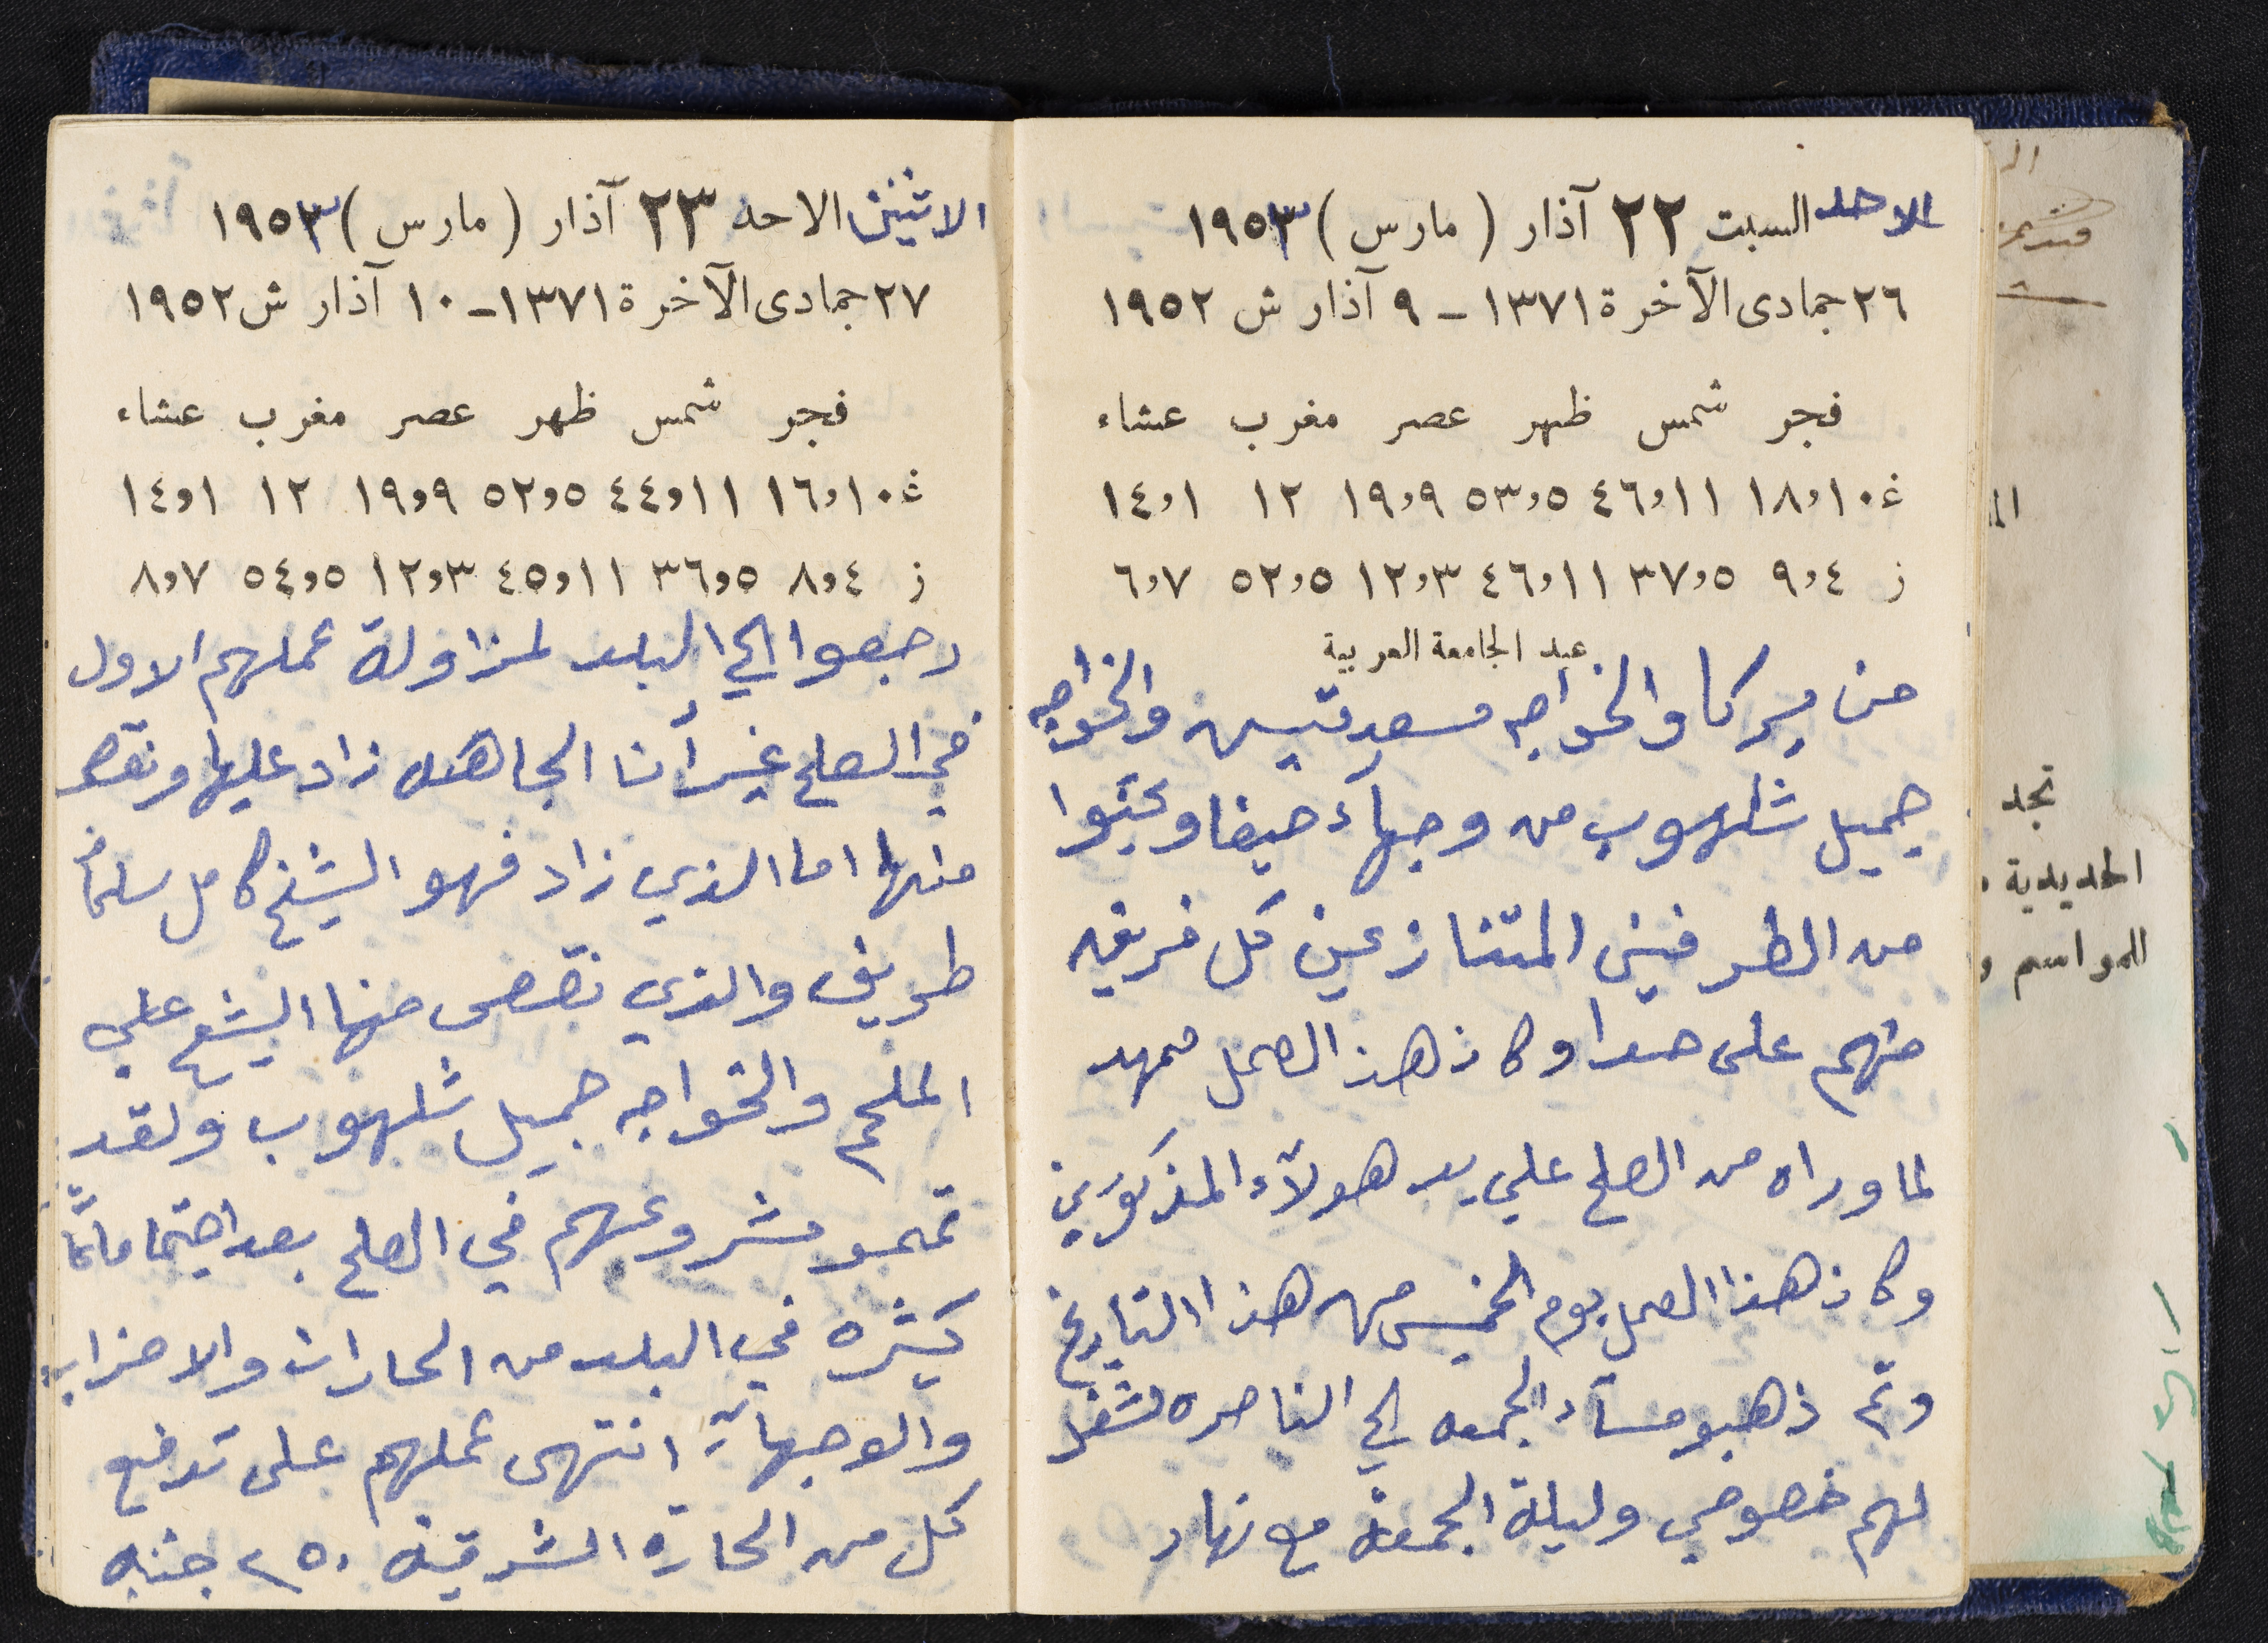 الاحد السبت ٢٢ آذار (مارس) ١٩٥٣
٢٦ جمادى الآخرة ١٣٧١ - ٩ آذار ش ١٩٥٢
فجر شمس ظهر عصر مغرب عشاء
غ ١٠و١٨ ١١و٤٦ ٥و٥٣ ٩و١٩ ١٢ ١و١٤
ز ٤و٩ ٥و٣٧ ١١و٤٦ ٣و١٢ ٥و٥٢ ٧و٦
عيد الجامعة العربية
من يركا والخواجه مسعد قسيس والخواجه
جميل شلهوب من وجهآء حيفا وبحثوا
من الطرفين المتنازعين كل فريق
منهم على حدا وكان هذ العمل ممهد
لما وراه من الصلح علي يد هولآء المذكورين
وكان هذا العمل يوم الخميس من هذا التاريخ
وتم ذهبو مسآء الجمعه الي الناصره لشغل
لهم خصوصي وليلة الجمعة مع نهار
الاثنين الاحد ٢٣ آذار (مارس) ١٩٥٣
٢٧ جمادى الآخرة ١٣٧١ - ١٠ آذار ش ١٩٥٢
فجر شمس ظهر عصر مغرب عشاء
غ ١٠و١٦ ١١و٤٤ ٥و٥٢ ٩و١٩ ١٢ ١و١٤
ز ٤و٨ ٥و٣٦ ١١و٤٥ ٣و١٢ ٥و٥٤ ٧و٨
رجعوا الي البلد لمزاولة عملهم الاول
في الصلح غير أن الجاهه زاد عليها ونقص
منها اما الذي زاد فهو الشيخ كامل سلمان
طريف والذي نقص منها الشيخ علي
الملحم والخواجه جميل شلهوب ولقد
تممو مشروعهم في الصلح بعد اجتماعات
كثيره في البلد من الحارات والاحزاب
والوجهآء انتهى عملهم على تدفع
كل من الحاره الشرقيه ٢٥٠ جنيه
تجد
الحديدية
للمواسم و